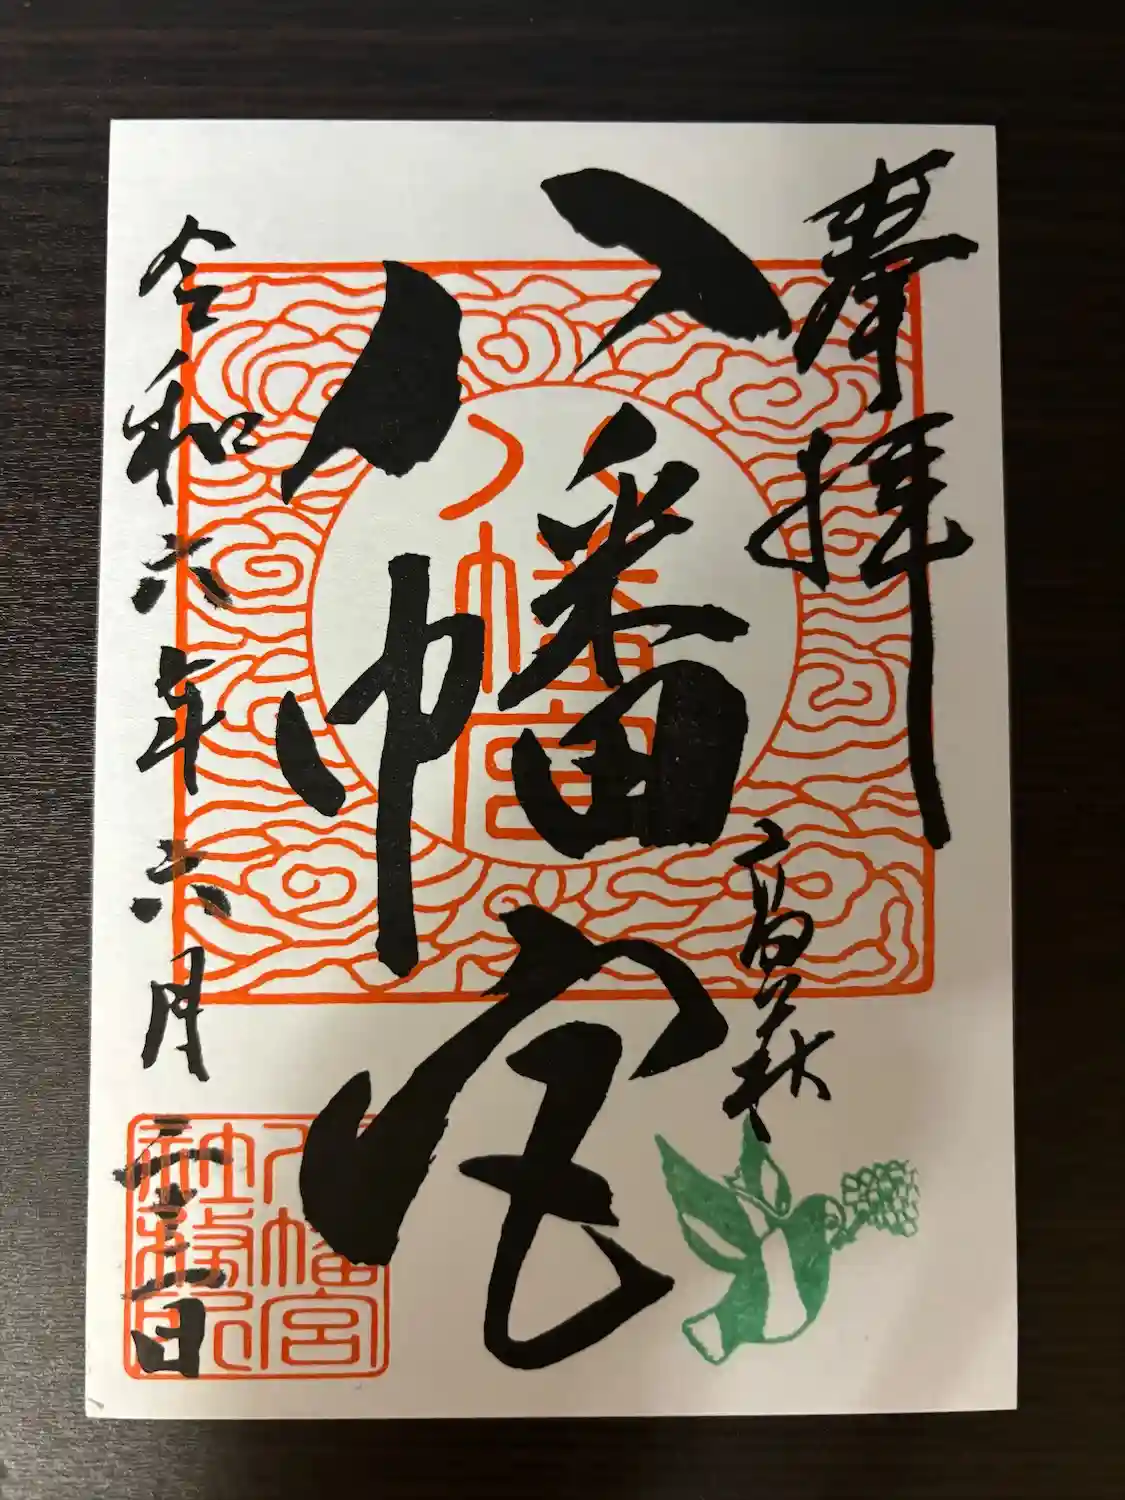 奉拝
高萩
八幡宮
八幡宮
令和六年六月二十三日
八幡宮
社務所